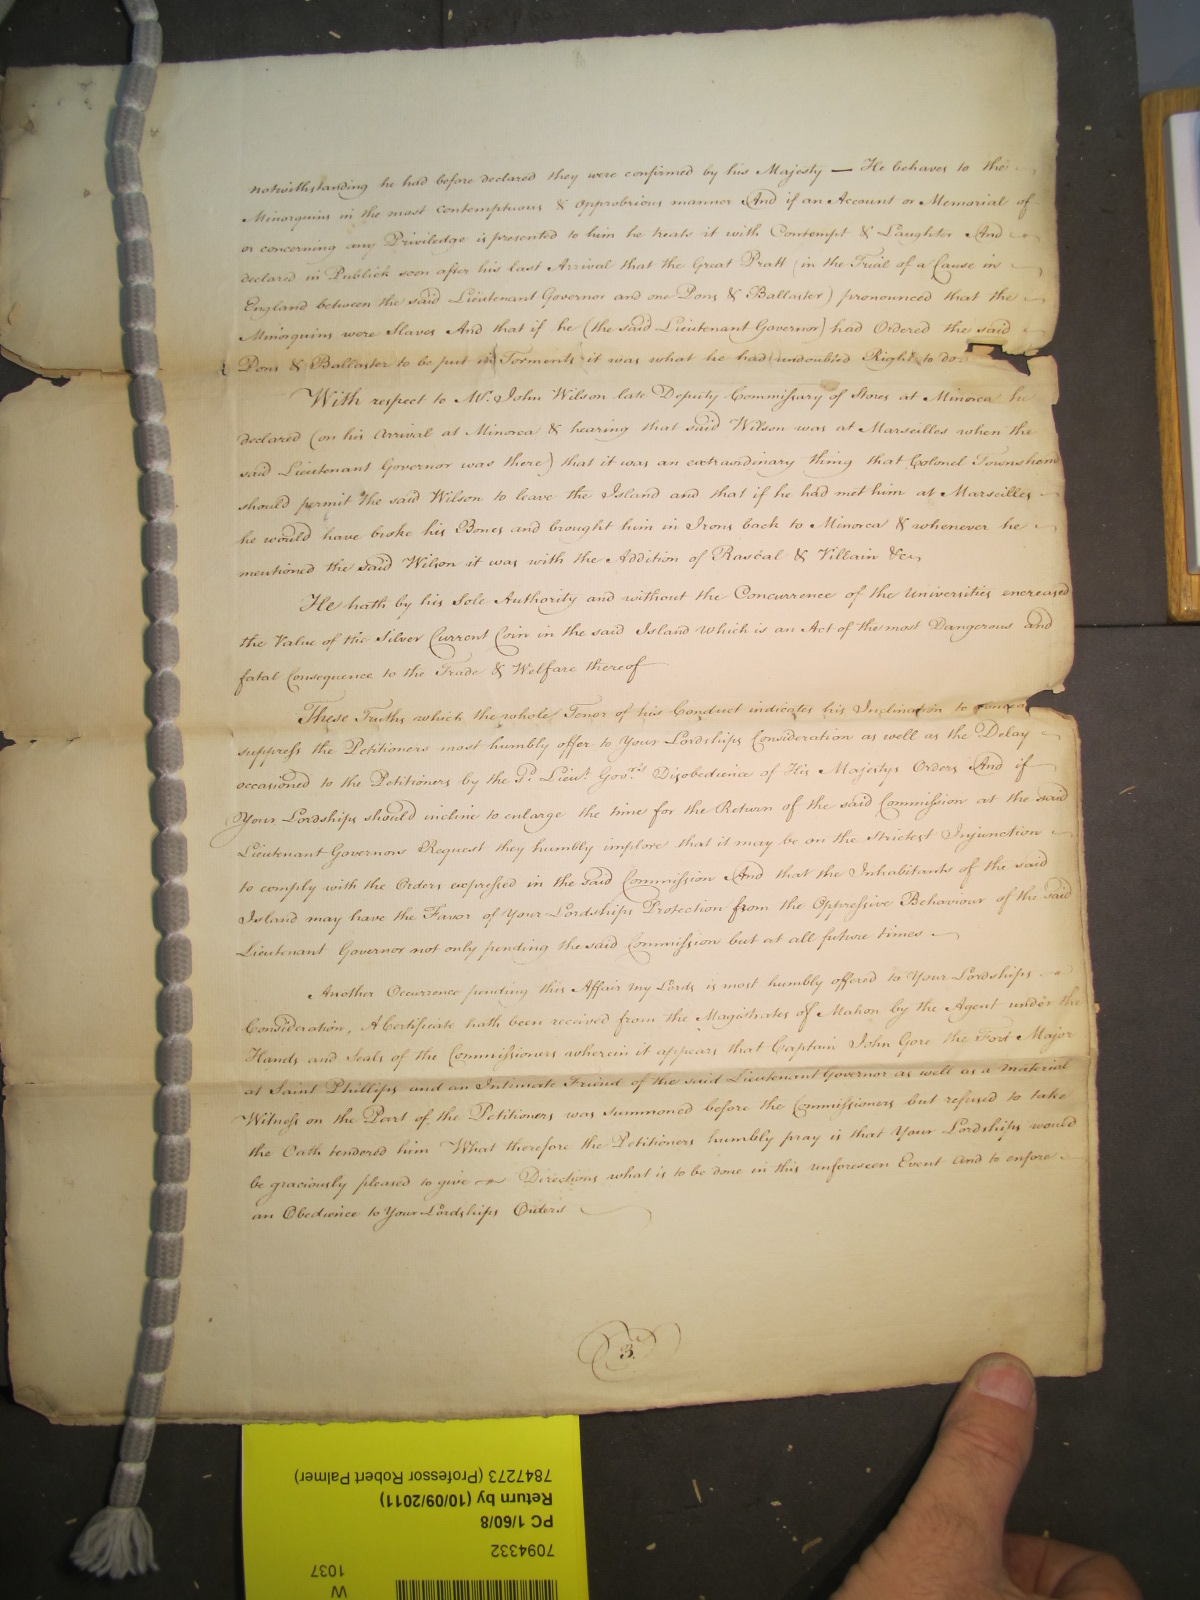 notwithstanding he had before declared they were confirmed by his Majesty — He behaves to the
Minorquins in the most contemptuous & opprobrious manner And if an Account or Memorial of
or concerning any Priviledge is presented to him he treats it with Contempt & Laughter And
declared in Publick soon after his last Arrival that the Great Pratt (in the Trial of a Cause in
England between the said Lieutenant Governor and one Pons & Ballaster) pronounced that the
Minorquins were Slaves And that if he (the said Lieutenant Governor) had Ordered the said
Pons & Ballaster to be put in Torments it was what he had undoubted Right to do
With respect to Mr. John Wilson late Deputy Commissary of Stores at Minorca he
declared (on his Arrival at Minorca & hearing that said Wilson was at Marseilles when the
said Lieutenant Governor was there) that it was an extraordinary thing that Colonel Townshend
should permit the said Wilson to leave the Island and that if he had met him at Marseilles
he would have broke his Bones and brought him in Irons back to Minorca & whenever he
mentioned the said Wilson it was with the Addition of Rascal & Villain &c
He hath by his Sole Authority and without the Concurrence of the Universities encreased
the Value of the Silver Current Coin in the said Island which is an Act of the most Dangerous and
fatal Consequence to the Trade & Welfare thereof
These Truths which the whole Tenor of his Conduct indicates his Inclination to
suppress the Petitioners most humbly offer to Your Lordships Consideration as well as the Delay
occasioned to the Petitioners by the sd. Lieut. Govrs. Disobedience of His Majestys Orders And if
Your Lordships should incline to enlarge the time for the Return of the said Commission at the said
Lieutenant Governors Request they humbly implore that it may be on the Strictest Injunction
to comply with the Orders expressed in the said Commission And that the Inhabitants of the said
Island may have the Favor of Your Lordships Protection from the Oppressive Behaviour of the said
Lieutenant Governor not only pending the said Commission but at all future times
Another Occurrence pending this Affair my Lords is most humbly offered to Your Lordships
Consideration, A Certificate hath been received from the Magistrates of Mahon by the Agent under the
Hands and Seals of the Commissioners wherein it appears that Captain John Gore the Fort Major
at Saint Phillips and an Intimate Friend of the said Lieutenant Governor as well as a material
Witness on the Part of the Petitioners was summoned before the Commissioners but refused to take
the Oath tendered him What therefore the Petitioners humbly pray is that Your Lordships would
be graciously pleased to give Directions what is to be done in this unforeseen Event and to enforce
an Obedience to Your Lordships Orders
3.
W
1037
7094332
PC 1/60/8
Return by (10/09/2011)
7847273 (Professor Robert Palmer)